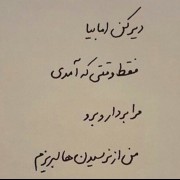 دیر کن اما بیا
فقط وقتی که آمدی
مرا بردار و برو
من از نرسیدن ها لبریزم